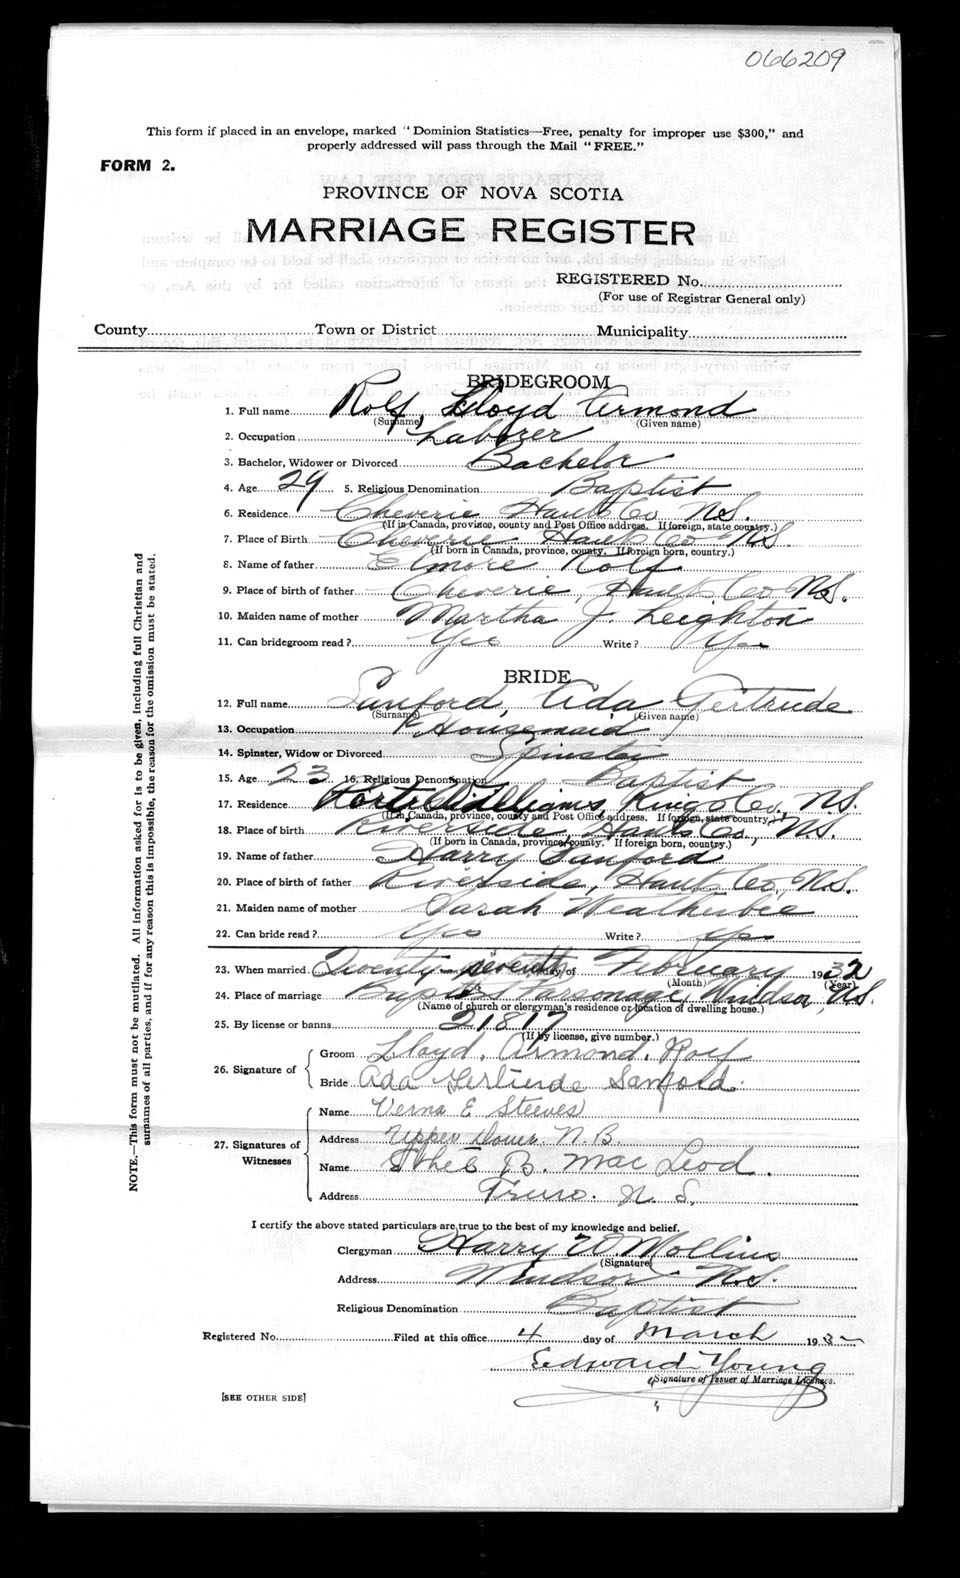 066209
This form if placed in an envelope, marked "Dominion Statistics—Free, penalty for improper use $300," and
properly addressed will pass through the Mail "FREE."
FORM 2.
PROVINCE OF NOVA SCOTIA
MARRIAGE REGISTER
REGISTERED No.
(For use of Registrar General only)
County Town or District Municipality
BRIDEGROOM
1. Full name Rolf, Lloyd Armond
(Surname) (Given name)
2. Occupation Laborer
3. Bachelor, Widower or Divorced Bachelor
4. Age 29 5. Religious Denomination Baptist
6. Residence Cheverie Hants Co N.S.
(If in Canada, province, county and Post Office address. If foreign, state country.)
7. Place of Birth Cheverie Hants Co N.S.
(If born in Canada, province, county. If foreign born, country.)
8. Name of father Elmore Rolf
9. Place of birth of father Cheverie, Hants Co N.S.
10. Maiden name of mother Martha J. Leighton
11. Can bridegroom read? Yes Write? Yes
BRIDE
12. Full name Sanford, Ada Gertrude
(Surname) (Given name)
13. Occupation Housemaid
14. Spinster, Widow or Divorced Spinster
15. Age 23 16. Religious Denomination Baptist
17. Residence Kings Co. N.S.
(If in Canada, province, county and Post Office address. If foreign, state country.)
18. Place of birth Riverside, Hants Co., N.S.
(If born in Canada, province, county. If foreign born, country.)
19. Name of father Harry Sanford
20. Place of birth of father Riverside, Hants Co, N.S.
21. Maiden name of mother Sarah Weatherbee
22. Can bride read? Yes Write? Yes
23. When married Twenty-seventh day of February 1932
(Month) (Year)
24. Place of marriage Baptist Parsonage, Windsor, N.S.
(Name of church or clergyman's residence or location of dwelling house.)
25. By license or banns 21817
(If by license, give number.)
26. Signature of
Groom Lloyd. Armond. Rolf
Bride Ada Gertrude Sanford.
27. Signatures of Witnesses
Name Verna E Steeves
Address Upper Dover. N.B.
Name Ethel B. MacLeod.
Address Truro. N. S.
I certify the above stated particulars are true to the best of my knowledge and belief.
Clergyman Harry W. Mollins
(Signature)
Address Windsor N.S.
Religious Denomination Baptist
Registered No. Filed at this office 4 day of March 1932
Edward Young
Signature of Issuer of Marriage Licenses.
[SEE OTHER SIDE]
NOTE.—This form must not be mutilated. All information asked for is to be given, including full Christian and
surnames of all parties, and if for any reason this is impossible, the reason for the omission must be stated.